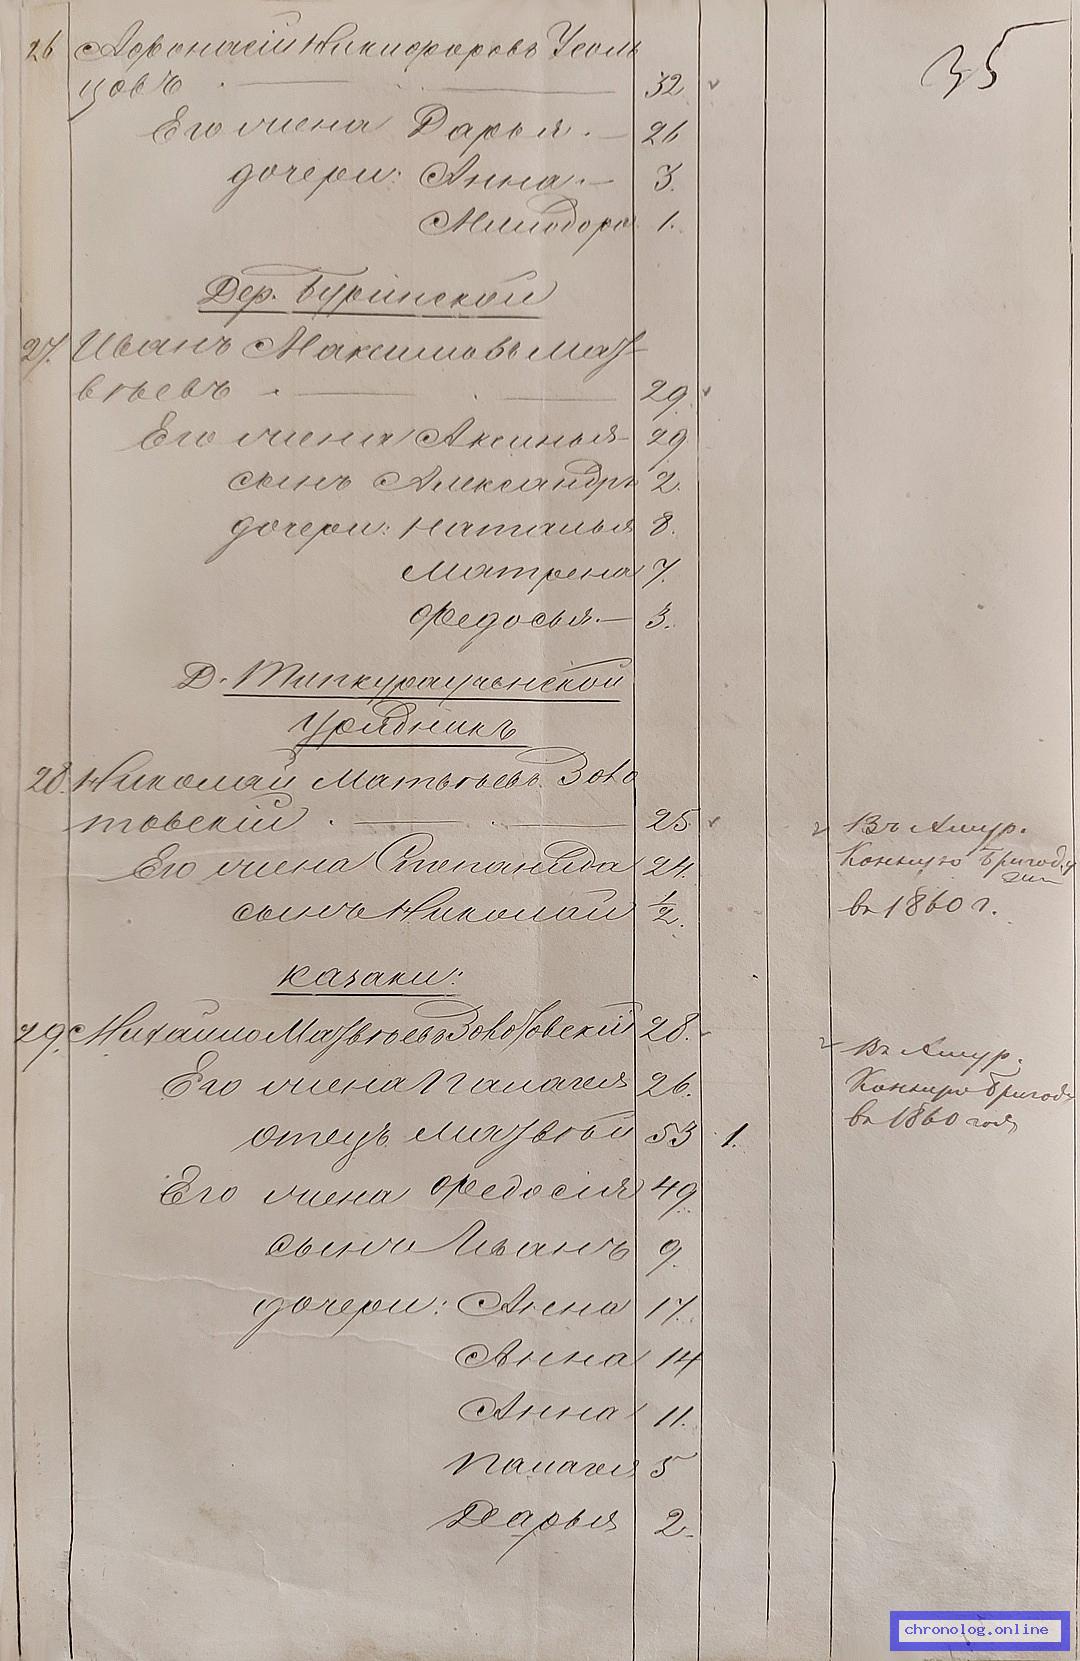 35
26 Афонасій Никифоровъ Усоль
цовъ . — 32
Его жена Дарья . — 26
дочери: Анна . — 3.
Милодора 1.
Дер. Буринской
27. Иванъ Максимовъ Мат-
вѣевъ . — 29.
Его жена Аксинья — 29
сынъ Александръ 2.
дочери: Наталья 8.
Матрена 7.
Федосья. — 3.
Д.
Урядникъ
28. Николай Матвѣевъ Золо
товскій . — 25
Въ Амур.
Конную Бригаду
Его жена Степанида 24.
сынъ Николай 1/2.
въ 1860 г.
казаки:
29. Михайло Матвѣевъ Золотовскій 28.
Въ Амур.
Его жена Палагея 26.
Конную Бригаду
въ 1860 годѣ
отецъ Матвѣй 53 1.
Его жена Федосія 49
сынъ Иванъ 9.
дочери: Анна 17.
Анна 14
Анна 11.
Палагея 5
Дарья 2.
chronolog.online